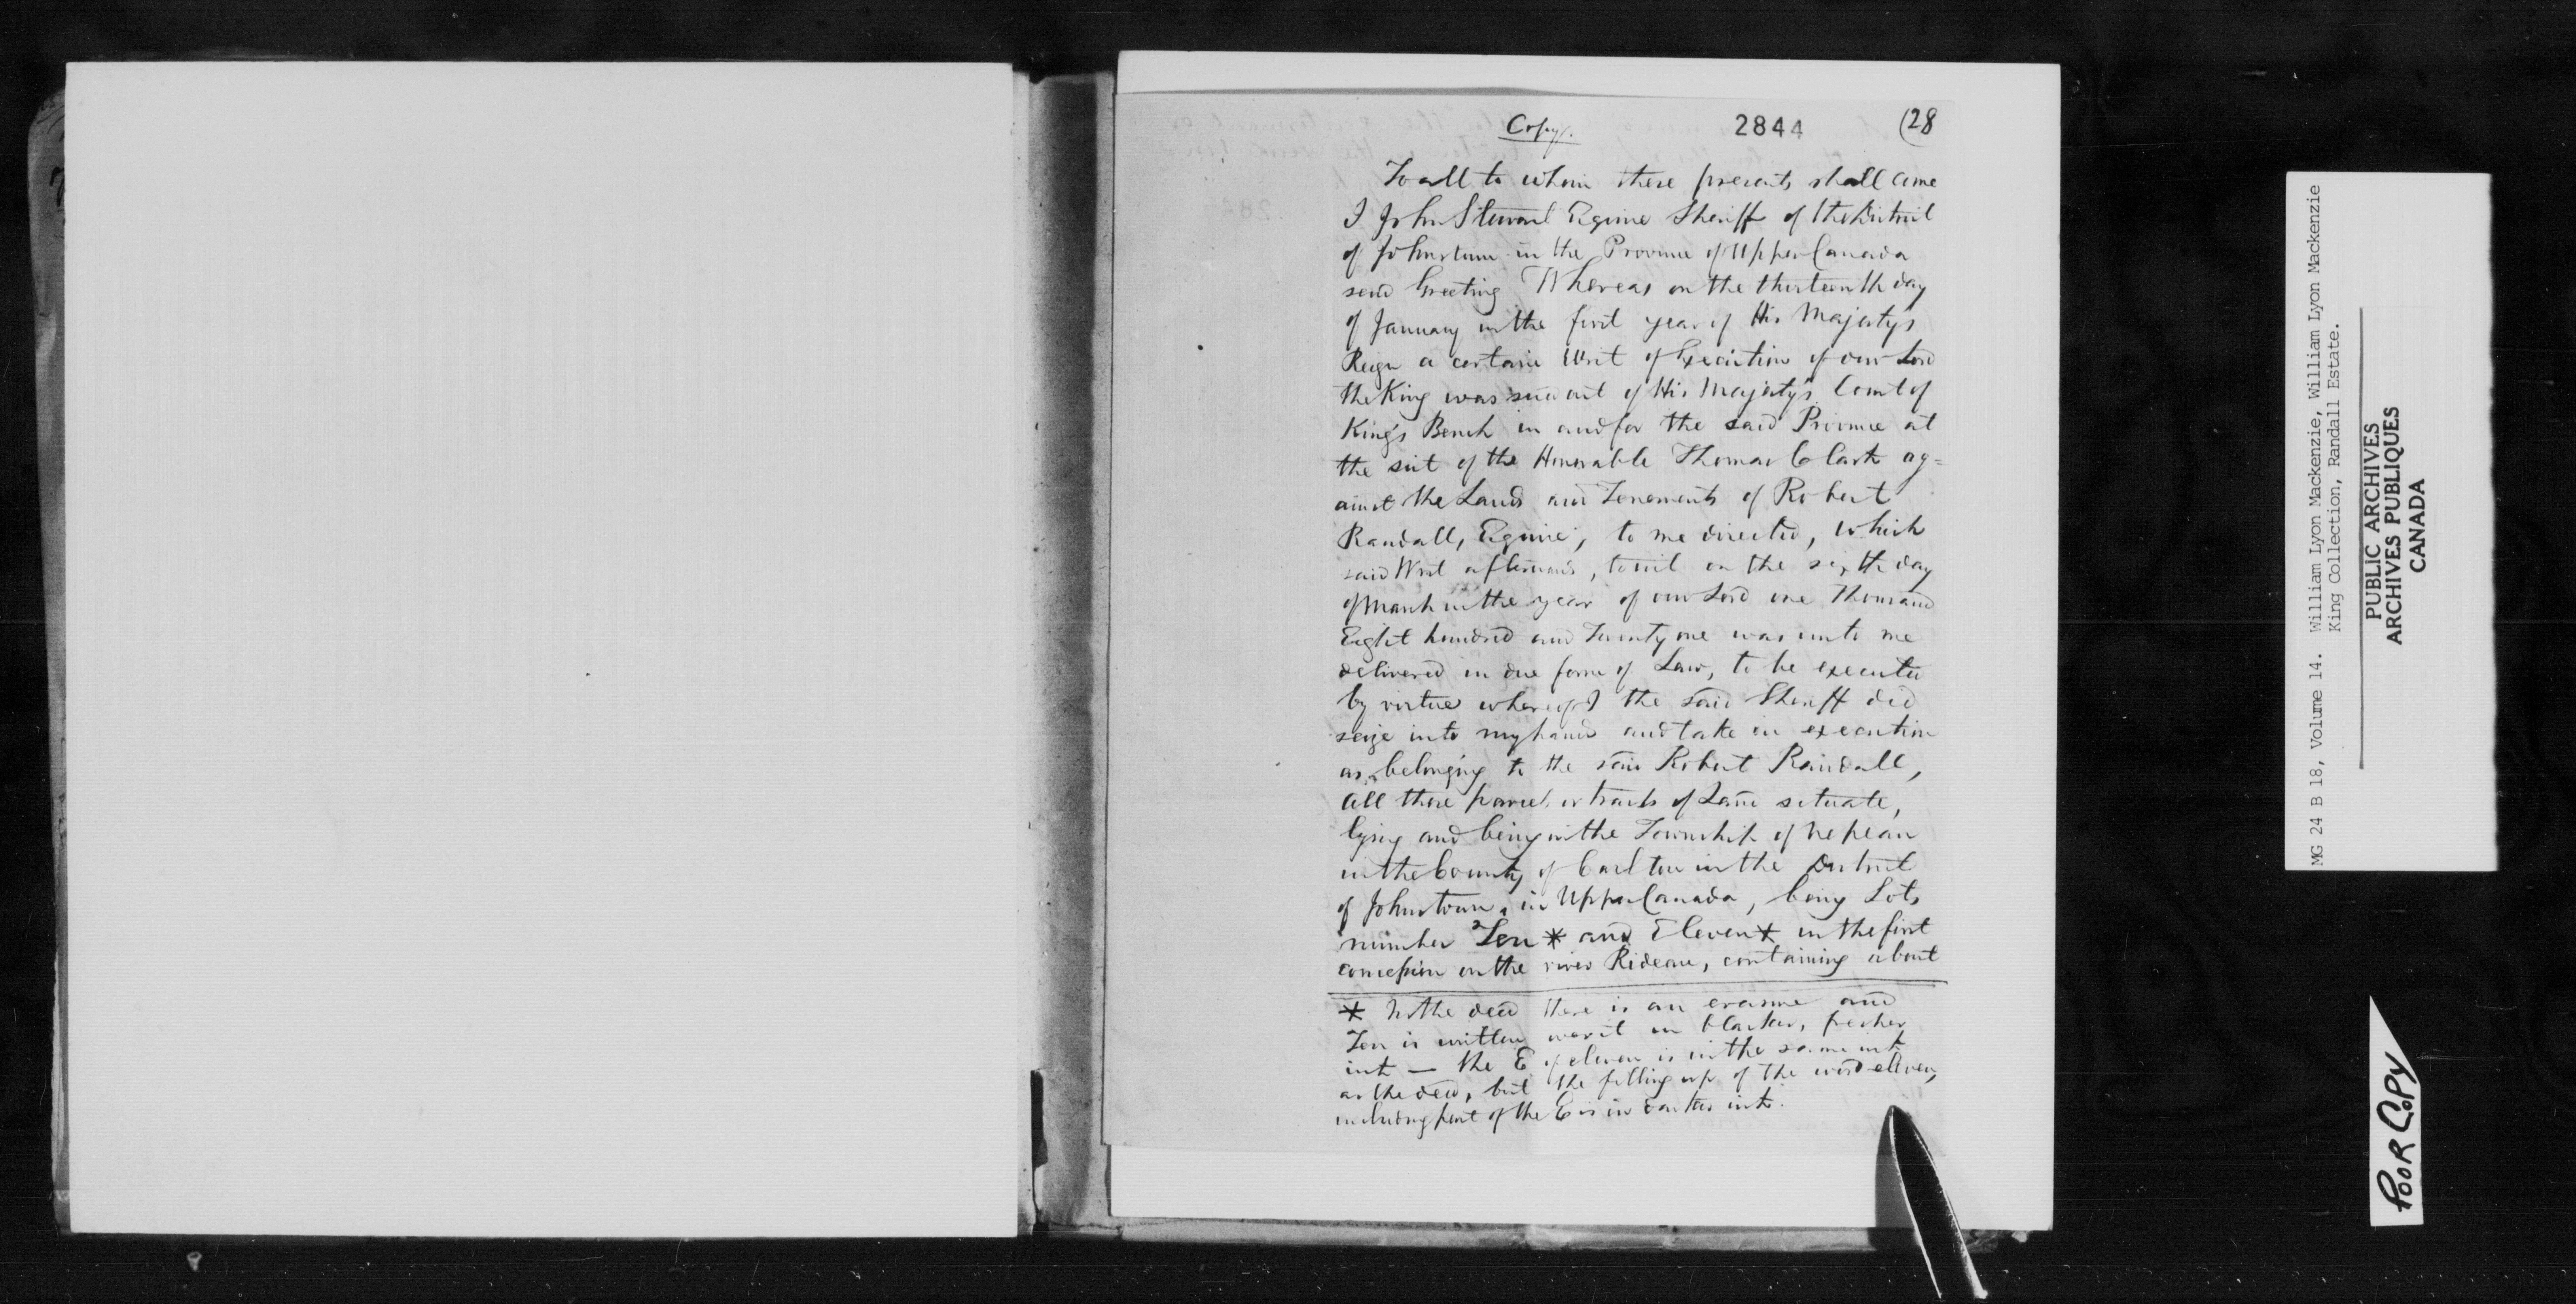 Copy.
2844
(28
To all to whom these presents shall come
I John Stewart Esquire Sheriff of the District
of Johnstown in the Province of Upper Canada
send Greeting Whereas on the thirteenth day
of January in the first year of His Majesty's
Reign a certain Writ of Execution of our Lord
the King was sued out of His Majesty's Court of
King's Bench in and for the said Province at
the suit of the Honorable Thomas Clark ag=
ainst the Lands and Tenements of Robert
Randall, Esquire, to me directed, which
said Writ afterwards, to wit on the sixth day
of March in the year of our Lord one Thousand
Eight hundred and Twenty one was unto me
delivered in due form of Law, to be executed
by virtue whereof I the said Sheriff did
seize into my hands and take in execution
as belonging to the said Robert Randall,
all those parcels or tracts of Land situate,
lying and being in the Township of Nepean
in the County of Carlton in the District
of Johnstown, in Upper Canada, being Lots
number Ten * and Eleven * in the first
concession on the river Rideau, containing about
* In the deed there is an erasure and
Ten is written over it in blacker, fresher
ink — the E of eleven is in the same ink
as the deed, but the filling up of the word eleven,
including part of the E is in darker ink.
MG 24 B 18, Volume 14. William Lyon Mackenzie, William Lyon Mackenzie
King Collection, Randall Estate.
PUBLIC ARCHIVES
ARCHIVES PUBLIQUES
CANADA
POOR COPY